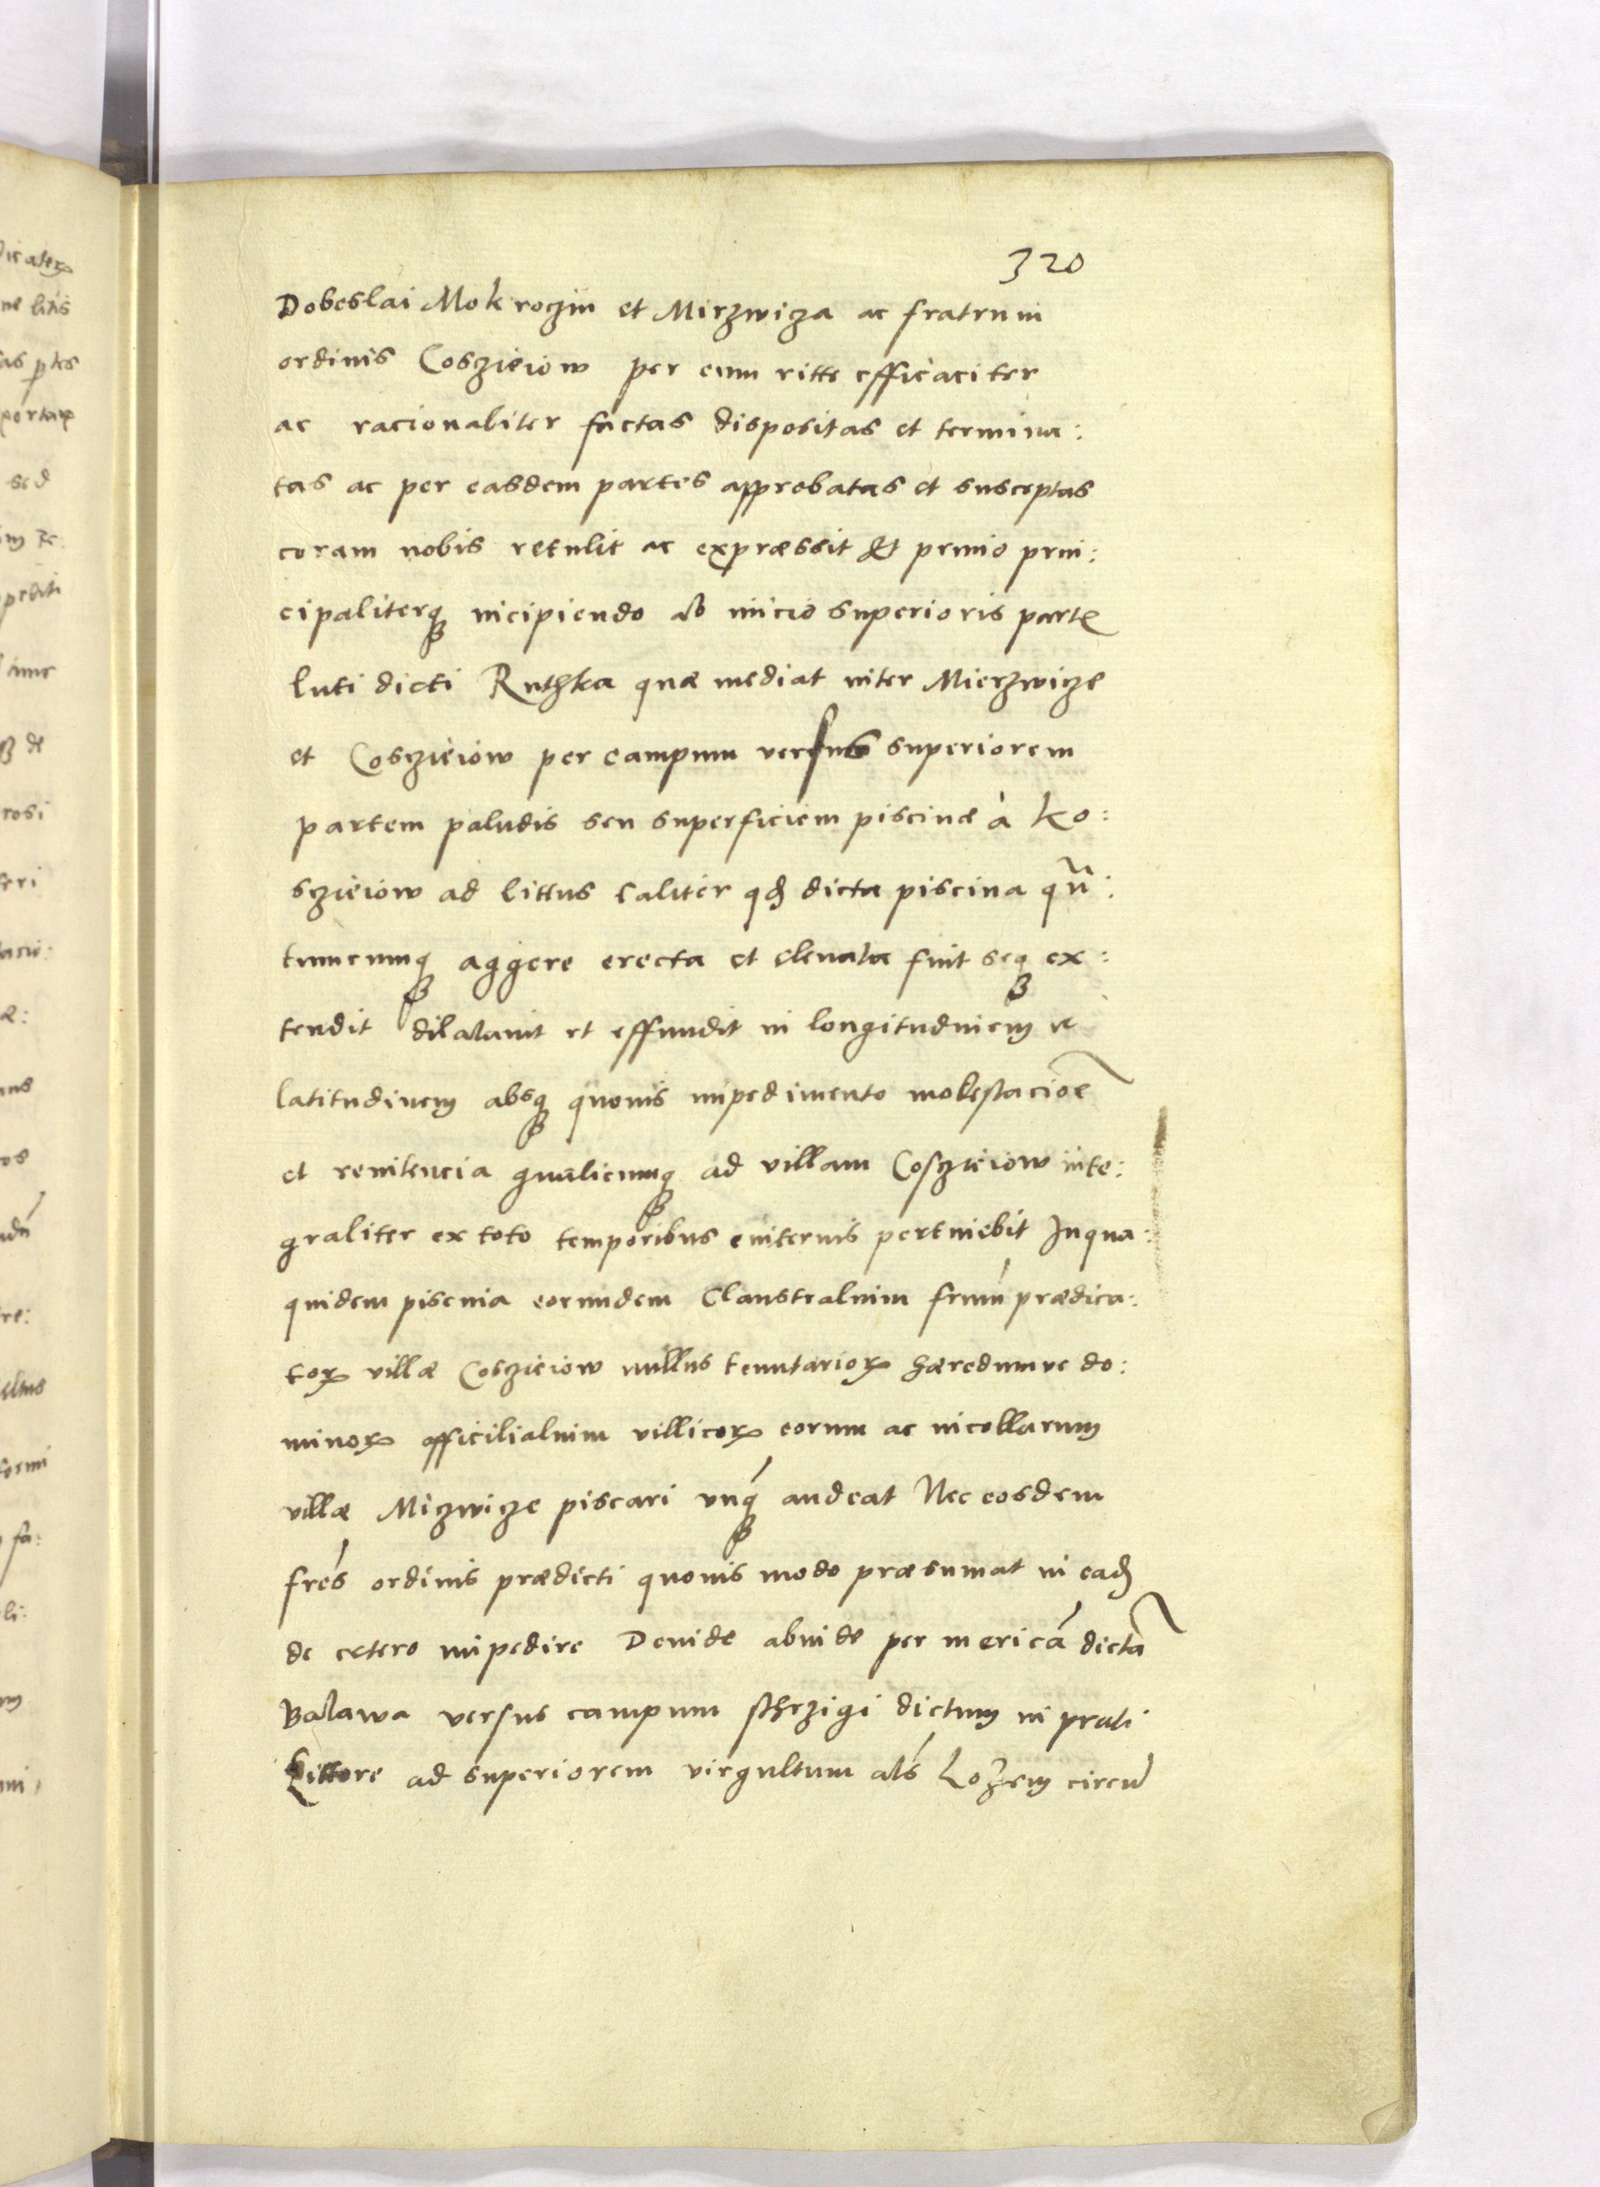 320
Dobeslai Mokroczin et Mirzwicza ac fratrum
ordinis Cosczieiow per eum ritte efficaciter
ac racionabiliter factas dispositas et termina:
tas ac per easdem partes approbatas et susceptas
coram nobis retulit ac expræssit Et primo prin:
cipaliterq₃ incipiendo ab inicio superioris parte
luti dicti Ruthka quæ mediat inter Mierzwicze
et Cosczieiow per campum versus superiorem
partem paludis seu superficiem piscinæ à Ko:
sczieiow ad littus taliter qd dicta piscina qũ:
tumcumq₃ aggere erecta et eleuata fuit seq₃ ex:
tendit dilatauit et effundit in longitudinem et
latitudinem absq₃ quouis impedimento molestacioẽ
et renitencia qualicumq₃ ad villam Cosczieiow inte:
graliter ex toto temporibus euiternis pertinebit In qua:
quidem piscina eorundem Claustralium frum prædica:
toꝝ villæ Cosczieiow nullus tenutarioꝝ hæredumue do:
minoꝝ officilialium villicoꝝ eorum ac incollarum
villæ Miczwicze piscari vnq₃ audeat Nec eosdem
fres ordinis prædicti quouis modo præsumat in ead
de cetero impedire Deinde abinde per mericã dictã
Balawa versus campum sthrzigi dictum in prati
Littore ad superiorem virgultum als Lozem circũ